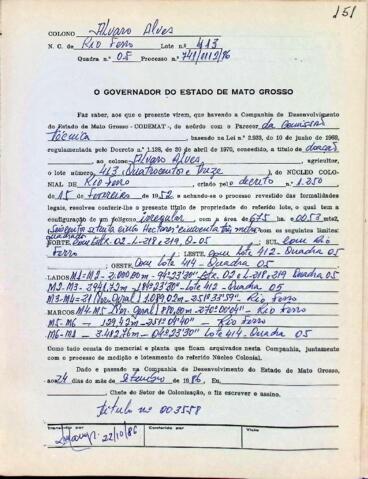 151
COLONO Alvaro Alves
N. C. de Rio Ferro Lote n.º 413
Quadra n.º 05 Processo n.º 741/0112/86
O GOVERNADOR DO ESTADO DE MATO GROSSO
Faz saber, aos que o presente virem, que havendo a Companhia de Desenvolvimento
do Estado de Mato Grosso - CODEMAT-, de acordo com o Parecer da Comissão
Técnica, baseado na Lei n.º 2.933, de 10 de junho de 1969,
regulamentada pelo Decreto n.º 1.128, de 20 de abril de 1970, concedido, a titulo de doação
ao colono Alvaro Alves, agricultor,
o lote número 413 (Quatrocentos e Treze), do NÚCLEO COLO-
NIAL DE Rio Ferro, criado pelo decreto n.º 1.250
de 15 de Fevereiro de 1952 e achando-se revestido das formalidades
legais, resolveu conferir-lhe o presente título de propriedade do referido lote, o qual tem a
configuração de um polígono irregular com a área de 675 ha e 0053 mts2,
Seiscentos setenta cinco Hectares e cinquenta três metros com os seguintes limites:
quadrados
NORTE, com Lote 02-L-218 e 219, Q-05; SUL, com Rio
Ferro; LESTE, com Lote 412-Quadra 05
OESTE, com Lote 414-Quadra 05
LADOS M1=M3- 2.000,00m - 94º23'30" Lote. 02-L-218 e 219 Quadra 05
M2-M3- 2948,72m - 184º23'30"- Lote 412 - Quadra 05
- 1.089,02m - 251º33'59" - Rio Ferro
MARCOS M4-M5 - 270º00'04" - Rio Ferro
M5-M6 - 129,42m - Rio Ferro
M6-M1 - 3.482,76m - 04º23'30" Lote 414 - Quadra 05
Como tudo consta do memorial e planta que ficam arquivados nesta Companhia, juntamente
com o processo de medição e loteamento do referido Núcleo Colonial.
Dado e passado na Companhia de Desenvolvimento do Estado de Mato Grosso,
aos 24 dias do mês de Setembro de 1986. Eu,
, Chefe do Setor de Colonização, o fiz escrever e assino.
Titulo nº 003558
Transcrito por Conferido por Visto
22/10/86